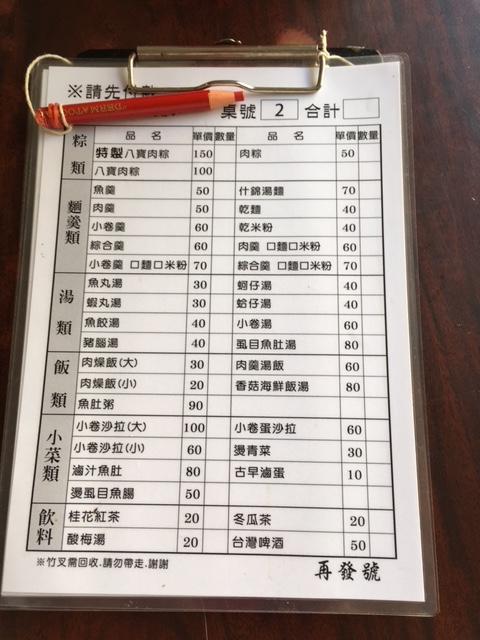 ※請先付款
DERMATO
桌號 2 合計
品名 單價 數量 品名 單價 數量
粽類
特製八寶肉粽 150 肉粽 50
八寶肉粽 100
麵羹類
魚羹 50 什錦湯麵 70
肉羹 50 乾麵 40
小卷羹 60 乾米粉 40
綜合羹 60 肉羹 口麵口米粉 60
小卷羹 口麵口米粉 70 綜合羹 口麵口米粉 70
湯類
魚丸湯 30 蚵仔湯 40
蝦丸湯 30 蛤仔湯 40
魚餃湯 40 小卷湯 60
豬腦湯 40 虱目魚肚湯 80
飯類
肉燥飯(大) 30 肉羹湯飯 60
肉燥飯(小) 20 香菇海鮮飯湯 80
魚肚粥 90
小菜類
小卷沙拉(大) 100 小卷蛋沙拉 60
小卷沙拉(小) 60 燙青菜 30
滷汁魚肚 80 古早滷蛋 10
燙虱目魚腸 50
飲料
桂花紅茶 20 冬瓜茶 20
酸梅湯 20 台灣啤酒 50
※竹叉需回收.請勿帶走.謝謝
再發號